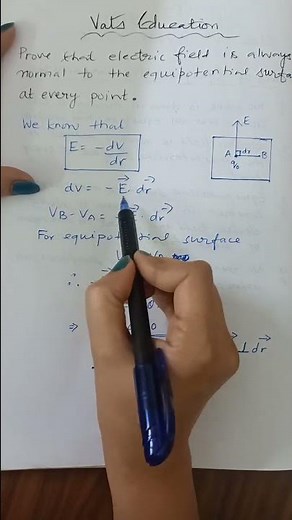 Vats Education
Prove that electric field is always
normal to the equipotential surfa
at every point.
We know that
E = - dV/dr
dV = - E⃗ . dr⃗
V_B - V_A = . dr⃗
For equipotential surface
∴ -
⇒ 0 ⊥ dr⃗
E
A dr B
q₀